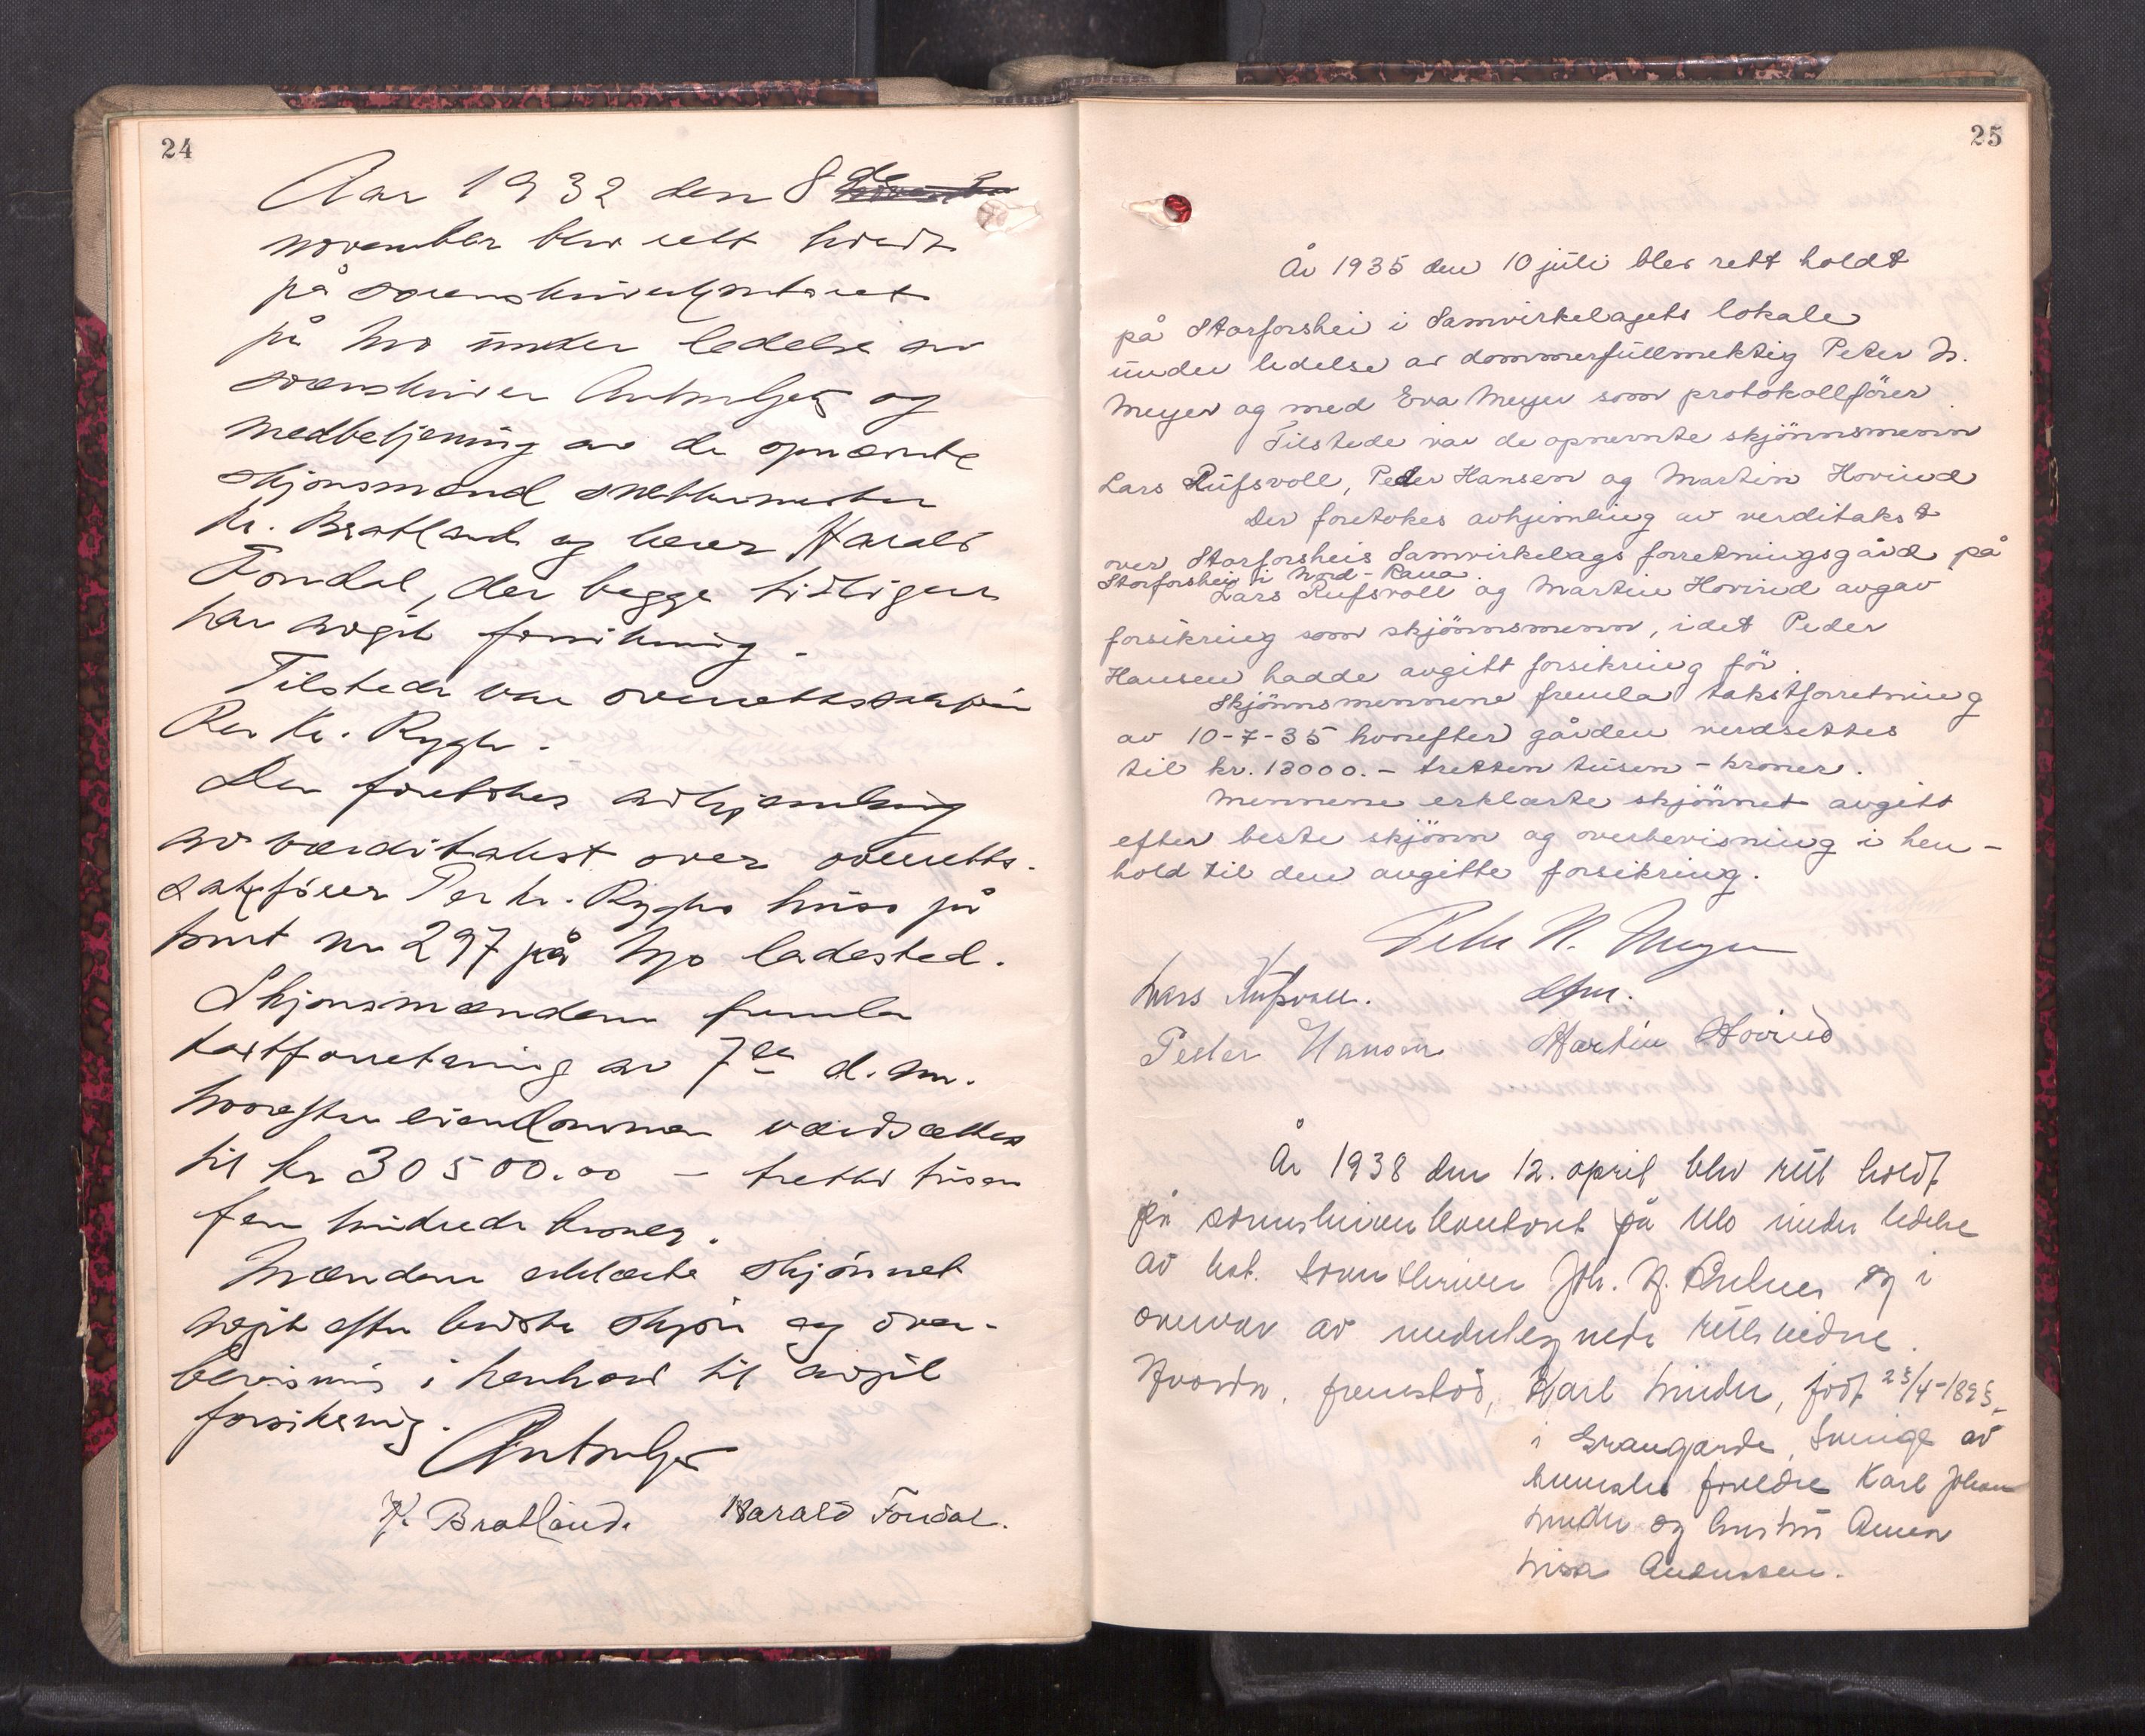 24
Aar 1932 den 8de
november blev rett holdt
på sorenskriverkontoret
på Mo under ledelse av
sorenskriver og
medbetjening av de opnævnte
skjønsmænd snekkermester
Kr. Bratland og lærer Harald
Forsdal, der begge tidligere
har avgit forsikring.
Tilstede var overrettssakfører
Per Kr. Rygh.
Der foretokes avhjemling
av værditakst over overretts-
sakfører Per Kr. Ryghs huss på
tomt nr 297 på Mo ladested.
Skjønsmændene fremla
takstforretning av 7de d. m.
hvorefter eiendommen værdsættes
til kr 30500.00 – tretti tusen
fem hundrede kroner.
Mændene erklærte skjønnet
avgit efter bedste skjøn og over-
bevisning i henhold til avgit
forsikring.
Kr. Bratland. Harald Forsdal.
25
År 1935 den 10 juli blev rett holdt
på Storforshei i Samvirkelagets lokale
under ledelse av dommerfullmektig Peter N.
Meyer og med Eva Meyer som protokollfører
Tilstede var de opnevnte skjønnsmenn
Lars Rufsvoll, Peder Hansen og Martin Hovind
Der foretokes avhjemling av verditakst
over Storforsheis Samvirkelags forretningsgård på
Storforshei i Nord-Rana
Lars Rufsvoll og Martin Hovind avgav
forsikring som skjønnsmenn, idet Peder
Hansen hadde avgitt forsikring før.
Skjønnsmennene fremla takstforretning
av 10-7-35 hvorefter gården verdsettes
til kr. 13000.- tretten tusen - kroner.
Mennene erklærte skjønnet avgitt
efter beste skjønn og overbevisning i hen-
hold til den avgitte forsikring.
Peter N. Meyer
Lars Rufsvoll. dfm.
Peder Hansen Martin Hovind
År 1938 den 12. april blev rett holdt
på sorenskriverkontoret på Mo under ledelse
av kst. sorenskriver Joh. og i
overvær av undertegnede rettsvidne.
fremstod, Karl Linder, født 23/4-1895
i Grangärde, Sverige av
svenske foreldre Karl Johan
Linder og hustru Anna
Lisa Andersson.